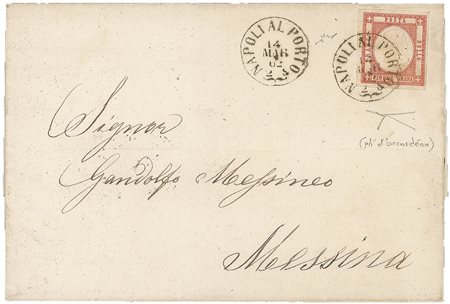 NAPOLI AL PORTO
14
MAR
62
NAPOLI AL PORTO
POSTE
Signor
(pli d'accordéon)
Gandolfo Messineo
Messina